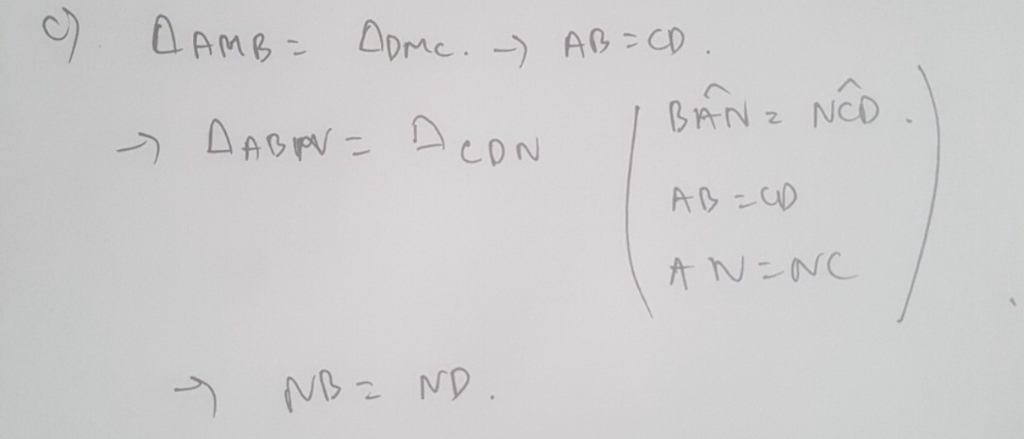 c) ΔAMB = ΔDMC. → AB = CD.
→ ΔABN = ΔCDN ( BÂN = NĈD.
AB = CD
AN = NC )
→ NB = ND.